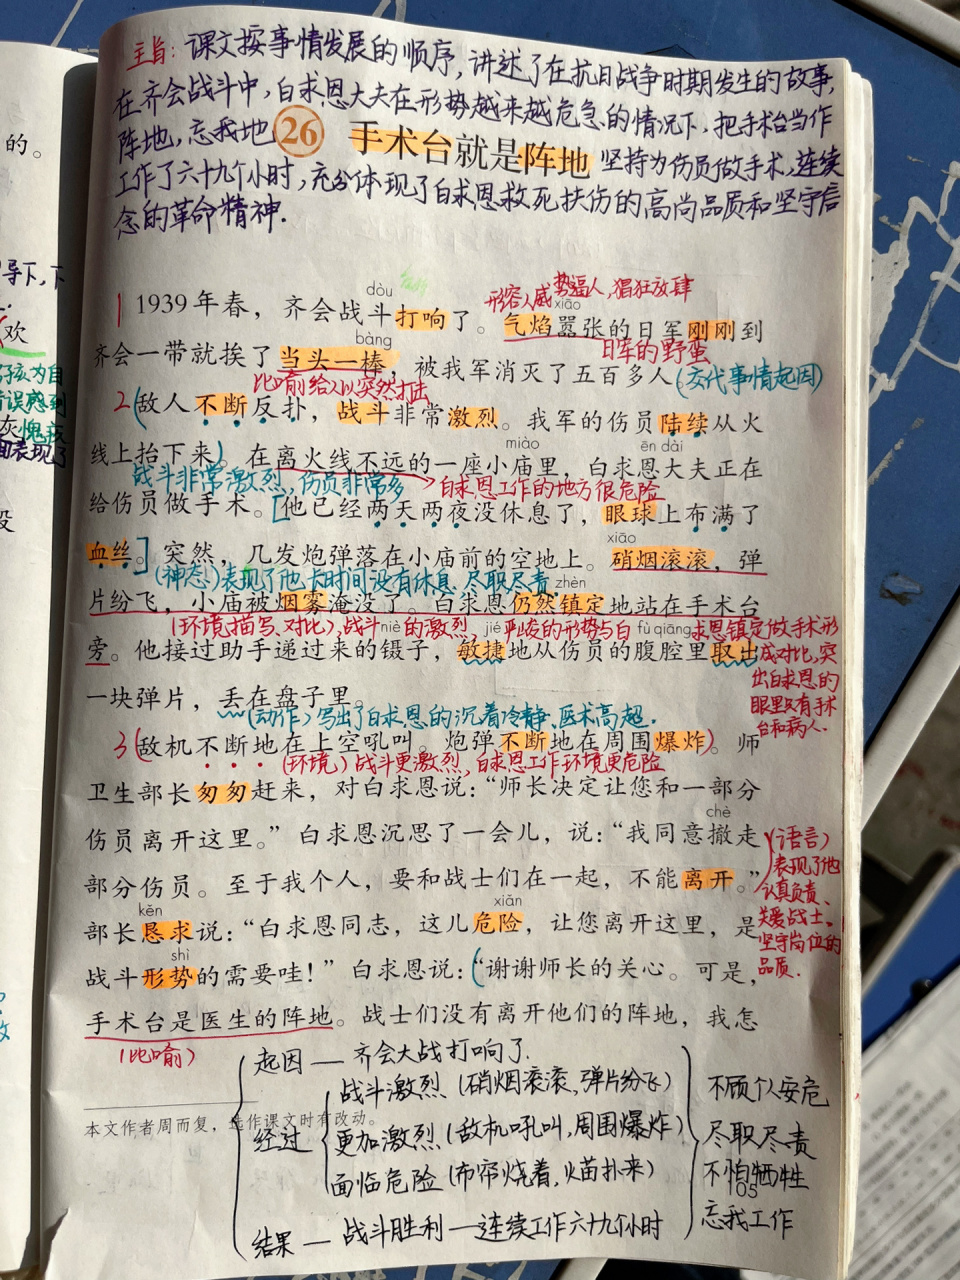 主旨：课文按事情发展的顺序，讲述了在抗日战争时期发生的故事，
在齐会战斗中，白求恩大夫在形势越来越危急的情况下，把手术台当作
阵地，忘我地
26 手术台就是阵地
坚持为伤员做手术，连续
工作了六十九个小时，充分体现了白求恩救死扶伤的高尚品质和坚守信
念的革命精神.
的。
导下，下
欢
形容人威势逼人，猖狂放肆
dòu xiāo
1 1939年春，齐会战斗打响了。气焰嚣张的日军刚刚到
日军的野蛮
bàng
齐会一带就挨了当头一棒，被我军消灭了五百多人(交代事情起因)
比喻给人以突然打击
2(敌人不断反扑，战斗非常激烈。我军的伤员陆续从火
miào ēn dài
线上抬下来)。在离火线不远的一座小庙里，白求恩大夫正在
战斗非常激烈，伤员非常多
白求恩工作的地方很危险
给伤员做手术。[他已经两天两夜没休息了，眼球上布满了
xiāo
血丝。]突然，几发炮弹落在小庙前的空地上。硝烟滚滚，弹
(神态)表现了他长时间没有休息、尽职尽责.
zhèn
片纷飞，小庙被烟雾淹没了。白求恩仍然镇定地站在手术台
(环境描写、对比)，战斗的激烈，严峻的形势与白求恩镇定做手术形
成对比，突
出白求恩的
眼里只有手术
台和病人.
niè jié fù qiāng
旁。他接过助手递过来的镊子，敏捷地从伤员的腹腔里取出
一块弹片，丢在盘子里。
(动作)写出了白求恩的沉着冷静、医术高超.
3(敌机不断地在上空吼叫。炮弹不断地在周围爆炸)。师
(环境)战斗更激烈，白求恩工作环境更危险
卫生部长匆匆赶来，对白求恩说：“师长决定让您和一部分
伤员离开这里。”白求恩沉思了一会儿，说：“我同意撤走
chè
部分伤员。至于我个人，要和战士们在一起，不能离开。”
(语言)
表现了他
认真负责、
关爱战士、
坚守岗位的
品质.
kěn xiǎn
部长恳求说：“白求恩同志，这儿危险，让您离开这里，是
shì
战斗形势的需要哇！”白求恩说：(“谢谢师长的关心。可是，
手术台是医生的阵地。战士们没有离开他们的阵地，我怎
(比喻)
起因—齐会大战打响了.
战斗激烈(硝烟滚滚，弹片纷飞)
不顾个人安危
本文作者周而复，选作课文时有改动。
经过
更加激烈(敌机吼叫，周围爆炸)
尽职尽责
面临危险(布帘烧着，火苗扑来)
不怕牺牲
105
忘我工作
结果—战斗胜利—连续工作六十九个小时